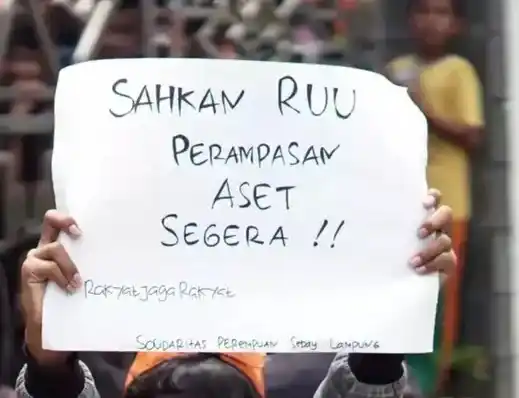 SAHKAN RUU
PERAMPASAN
ASET
SEGERA !!
Rakyat jaga Rakyat
SOLIDARITAS PEREMPUAN Sebay LAMPUNG